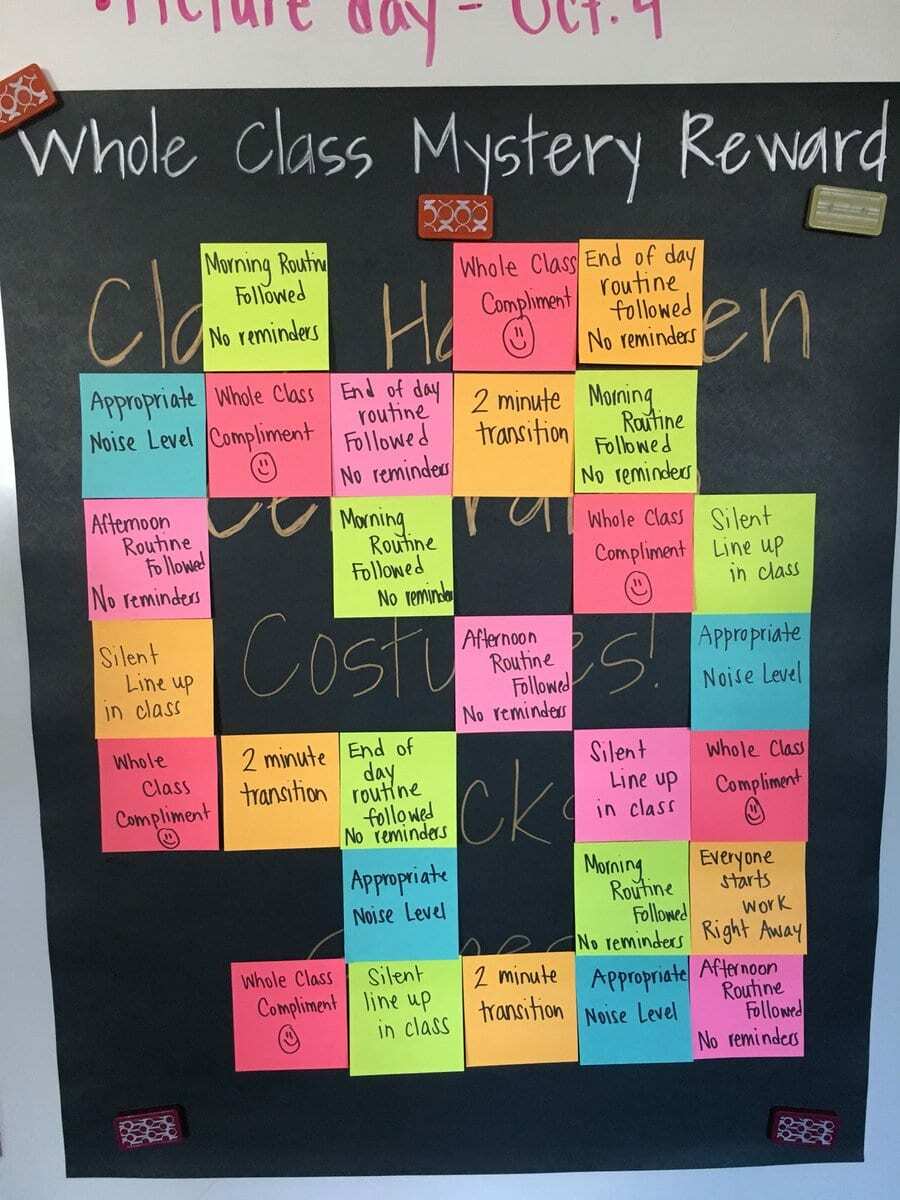 •Picture day - Oct. 4
Whole Class Mystery Reward
Cla Ha en
Morning Routin
Followed
No reminders
Whole Class
Compliment
End of day
routine
followed
No reminders
Appropriate
Noise Level
Whole Class
Compliment
End of day
routine
Followed
No reminders
2 minute
transition
Morning
Routine
Followed
No reminders
Afternoon
Routine
Followed
No reminders
Morning
Routine
Followed
No reminders
Whole Class
Compliment
Silent
Line up
in class
Silent
Line up
in class
Costu es!
Afternoon
Routine
Followed
No reminders
Appropriate
Noise Level
Whole
Class
Compliment
2 minute
transition
End of
day
routine
followed
No reminders
cks
Silent
Line up
in class
Whole Class
Compliment
Appropriate
Noise Level
Morning
Routine
Followed
No reminders
Everyone
starts
work
Right Away
Whole Class
Compliment
Silent
line up
in class
2 minute
transition
Appropriate
Noise Level
Afternoon
Routine
Followed
No reminders